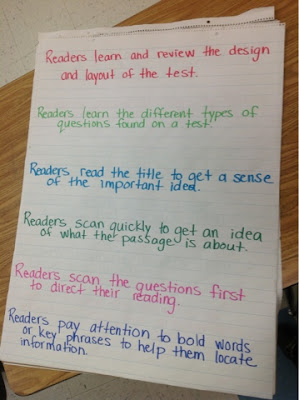 Readers learn and review the design
and layout of the test.
Readers learn the different types of
questions found on a test.
Readers read the title to get a sense
of the important idea.
Readers scan quickly to get an idea
of what the passage is about.
Readers scan the questions first
to direct their reading.
Readers pay attention to bold words
or key phrases to help them locate
information.